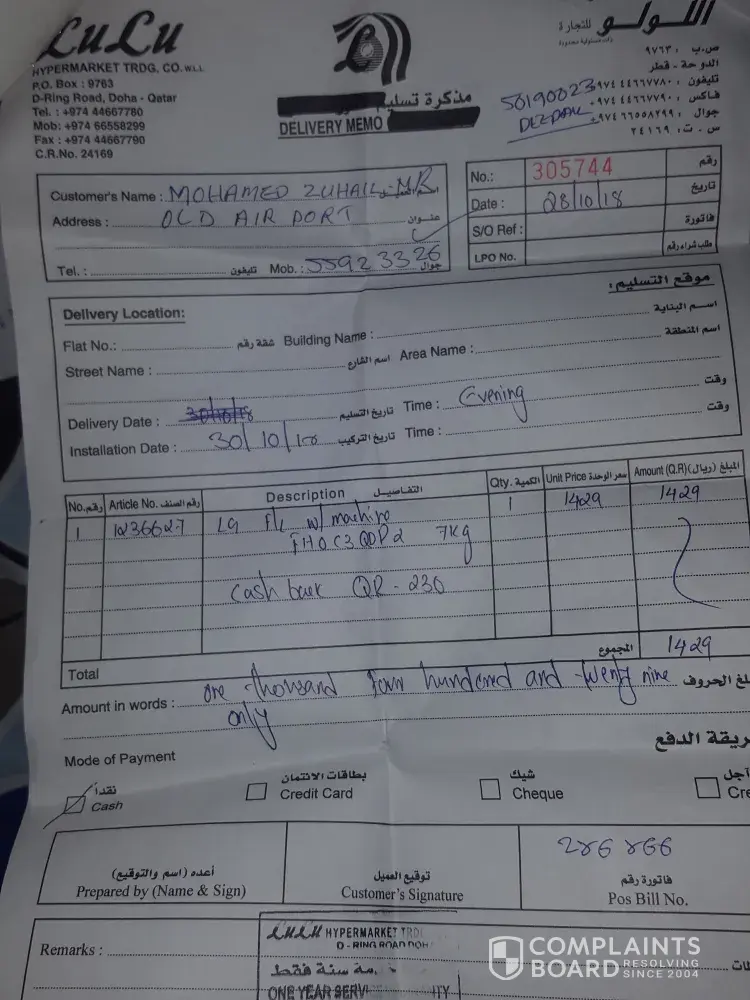 LuLu
HYPERMARKET TRDG. CO. W.L.L
P.O. Box : 9763
D-Ring Road, Doha - Qatar
Tel. : +974 44667780
Mob: +974 66558299
Fax : +974 44667790
C.R.No. 24169
اللولو للتجارة
ذات مسئولية محدودة
ص.ب ٩٧٦٣
الدوحة - قطر
تليفون : ٩٧٤ ٤٤٦٦٧٧٨٠+
فاكس : ٩٧٤ ٤٤٦٦٧٧٩٠+
جوال : ٩٧٤ ٦٦٥٥٨٢٩٩+
س.ت: ٢٤١٦٩
50190023
DEEPAK
مذكرة تسليم
DELIVERY MEMO
Customer's Name : MOHAMED ZUHAIL MR
Address : OLD AIR PORT عنوان
Tel. : تليفون Mob. : 55923326 جوال
No.: 305744 رقم
Date : 28/10/18 تاريخ
S/O Ref : فاتورة
LPO No. طلب شراء رقم
Delivery Location: موقع التسليم :
Flat No.: شقة رقم Building Name : اسم البناية
Street Name : اسم الشارع Area Name : اسم المنطقة
Delivery Date : 30/10/18 تاريخ التسليم Time : Evening وقت
Installation Date : 30/10/18 تاريخ التركيب Time : وقت
No. رقم Article No. رقم الصنف Description التفاصيل Qty. الكمية Unit Price سعر الوحدة Amount (Q.R) المبلغ (ريال)
1 1236627 LG F/L w/machine 1 1429 1429
FH0C3QDP2 7Kg
Cash back QR - 230
Total المجموع 1429
Amount in words : one thousand four hundered and twenty nine لغ الحروف
only
Mode of Payment يقة الدفع
نقداً Cash
بطاقات الائتمان Credit Card
شيك Cheque
آجل Cre
أعده (اسم والتوقيع)
Prepared by (Name & Sign)
توقيع العميل
Customer's Signature
286866
فاتورة رقم
Pos Bill No.
Remarks :
LuLu HYPERMARKET TRD
D - RING ROAD DOH
مة سنة فقط
ONE YEAR SERVI
COMPLAINTS
BOARD RESOLVING
SINCE 2004